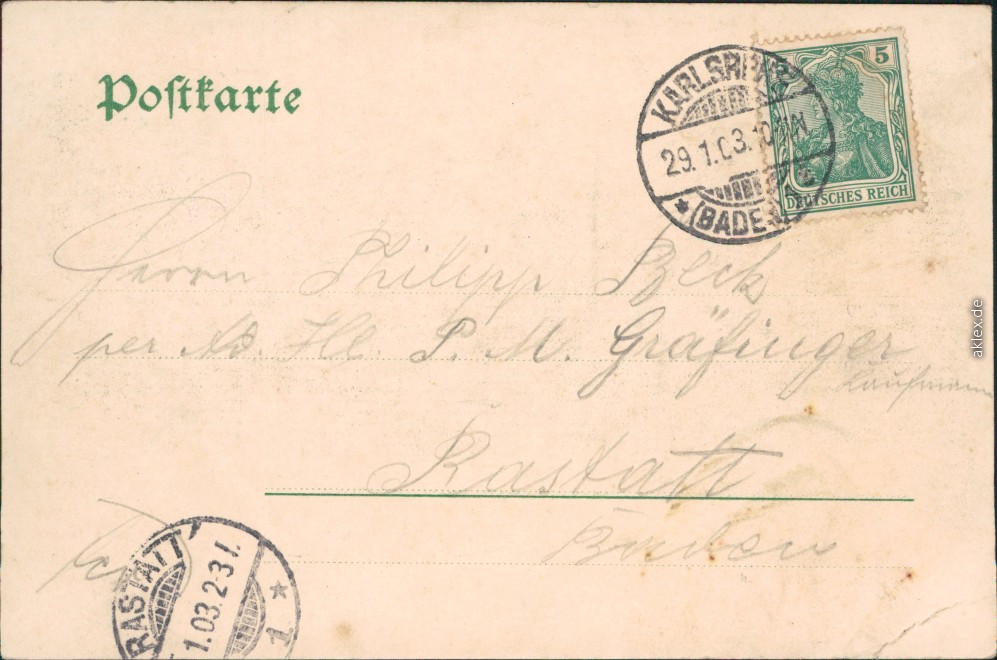 Postkarte
KARLSRUHE
29.1.03.10
(BADEN)
5
DEUTSCHES REICH
Herrn Philipp Beck
per Ad. Hl. P. M. Gräfinger
Kaufmann
Rastatt
Baden
RASTATT
1.03.2-3
1
aklex.de